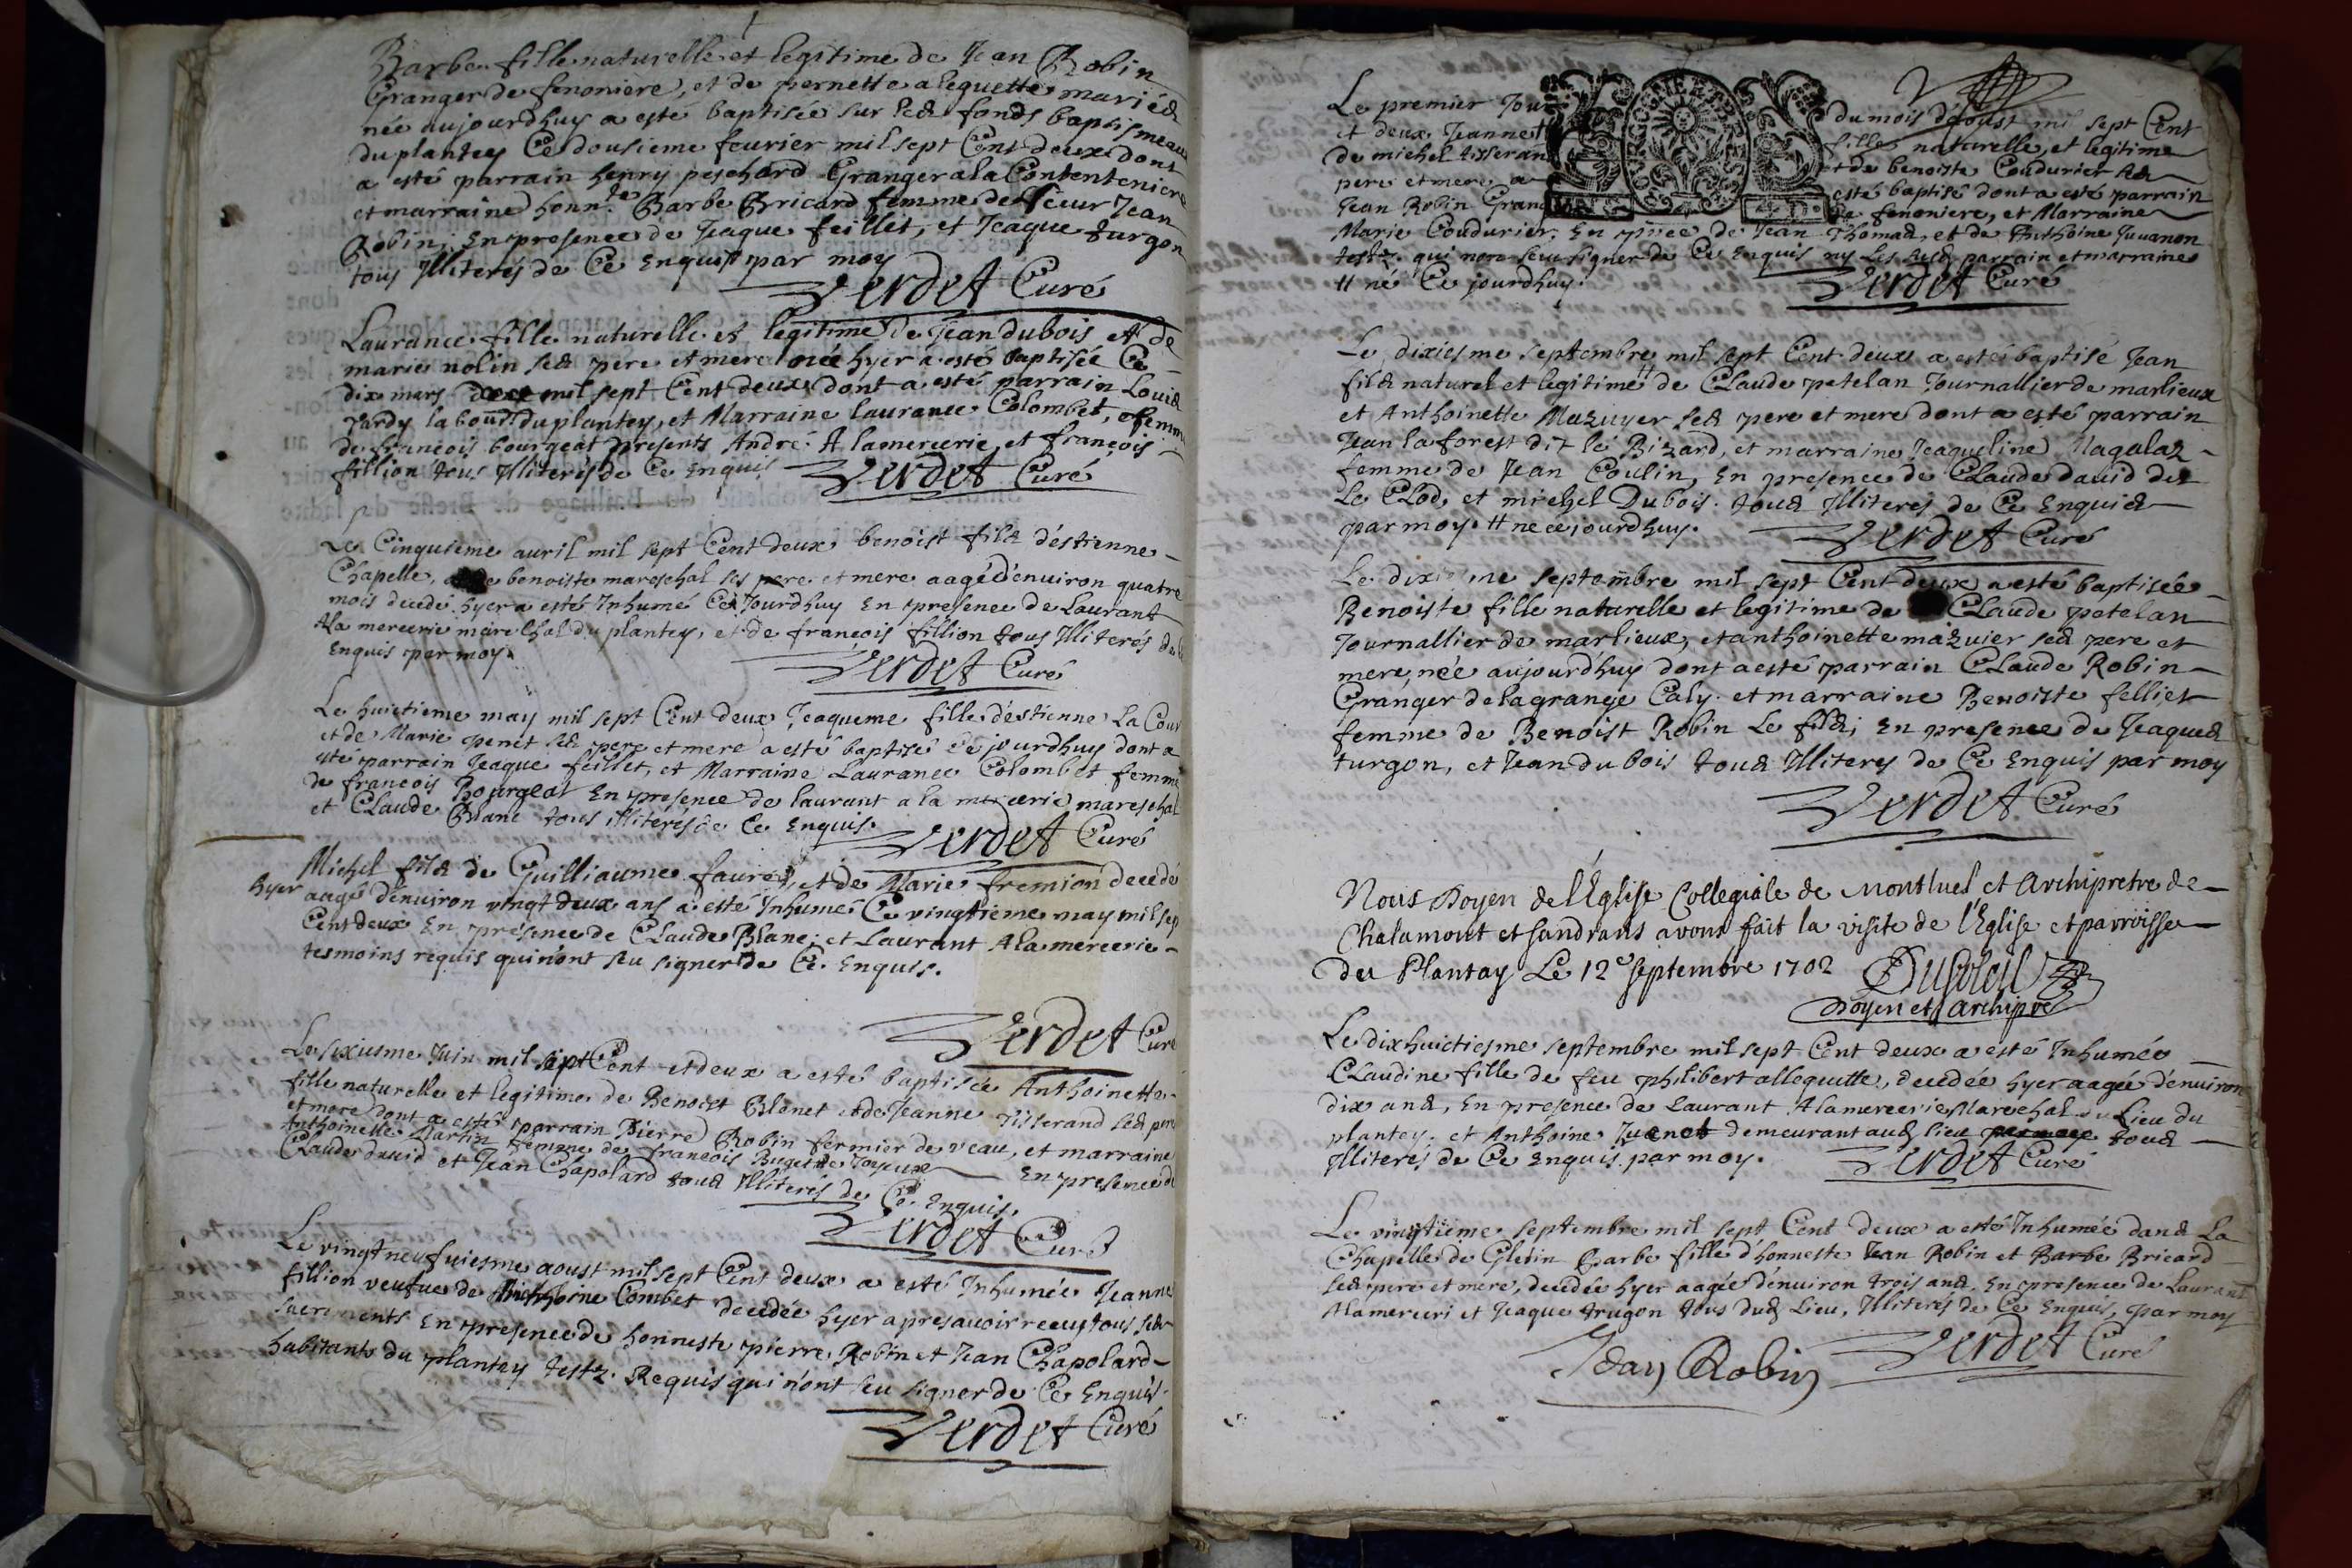 Barbe fille naturelle et legitime de Jean Robin
Granger de fenoniere, et de pernette aleguette mariés
née aujourdhuy a esté baptisée sur les fonds baptismeaux
du plantey Ce dousieme feurier mil sept Cent deux dont
a esté parrain henry peschard Granger a la Contenteniere
et marraine honn.te Barbe Bricard femme de Sieur Jean
Robin; En presence de Jeaque feillet, et Jeaque turgon
tous Illiterés de Ce Enquis par moy
Verdet Curé
Laurance fille naturelle et legitime de Jean dubois et de
marie nolin ses pere et mere née hyer a esté baptisée Ce
dix mars mil sept Cent deux dont a esté parrain Louis
Vardy labour du plantey, et Marraine laurance Colombet, femme
de francois bourgeat presents André Alamercerie, et françois
fillion tous Illiterés de Ce Enquis Verdet Curé
Le Cinquieme auril mil sept Cent deux benoist fils d'éstienne
Chapelle, benoiste mareschal ses pere et mere aagé d'enuiron quatre
mois decedé hyer a esté Inhumé Ce Jourdhuy En presence de Laurant
Ala mercerie mareschal du plantey, et de françois fillion tous Illiterés de Ce
Enquis par moy.
Verdet Curé
Le huictieme may mil sept Cent deux Jeaqueme fille d'éstienne La Cour
et de Marie penet ses pere et mere a esté baptisé Ce jourdhuy dont a
esté parrain Jeaque feillet, et Marraine Laurance Colombet femme
de francois Bourgeat En presence de laurant a la mercerie mareschal
et Claude Blanc tous illiterés de Ce Enquis.
Verdet Curé
Michel fils de Guilliaume faure, et de Marie fremion decedé
hyer aagé d'enuiron vingt deux ans a esté Inhumé Ce vingtieme may mil sept
Cent deux En présence de Claude Blanc; et Laurant Alamercerie
tesmoins requis qui n'ont seu signer de Ce Enquis.
Verdet Curé
Le sixiesme Juin mil sept Cent et deux a esté baptisée Anthoinette
fille naturelle et legitime de Benoist Blanet et de Jeanne Tisserand ses pere
et mere dont a esté parrain Pierre Robin fermier de veau, et marraine
Anthoinette Martin femme de francois Joyeux En presence de
Claude dauid et Jean Chapolard tous Illiterés de Ce Enquis.
Verdet Curé
Le vingt neufuiesme aoust mil sept Cent deux a esté Inhumée Jeanne
fillion veufue de Anthoine Combet decedée hyer apres auoir receu tous ses
sacrements En presence de honneste pierre Robin et Jean Chapolard
habitants du plantey testz. Requis qui n'ont seu signer de Ce Enquis.
Verdet Curé
Le premier Jour du mois d'aoust mil sept Cent
et deux Jeanne fille naturelle et legitime
de michel tisseran et de benoiste Coudurier ses
pere et mere a esté baptisé dont a esté parrain
Jean Robin Grang de fenoniere, et Marraine
Marie Coudurier; En pñce de Jean Thomas, et de Anthoine Juuanon
testz. qui non seu signer de Ce Enquis ny les sus parrain et marraine
# né Ce jourdhuy.
Verdet Curé
Le dixiesme septembre mil sept Cent deux a esté baptisé Jean
fils naturel et legitime # de Claude petelan Journallier de marlieux
et Anthoinette Mazuyer ses pere et mere dont a esté parrain
Jean laforest dit le Bizard, et marraine Jeaqueline Magalaz
femme de Jean Coulin, En presence de Claude dauid dit
Le Clod, et michel Dubois. tous Illiterés de Ce Enquis
par moy. # ne ce jourdhuy.
Verdet Curé
Le dixiesme septembre mil sept Cent deux a esté baptisée
Benoiste fille naturelle et legitime de Claude petelan
Journallier de marlieux, et anthoinette mazuier ses pere et
mere, née aujourd'huy dont a esté parrain Claude Robin
Granger de lagrange Caly. et marraine Benoiste felliet
femme de Benoist Robin Le fils; En presence de Jeaques
turgon, et Jean dubois tous Illiterés de Ce Enquis par moy
Verdet Curé
Nous Doyen de l'Eglise Collegiale de Montluel et Archipretre de
Chalamont et sandrans avons fait la visite de l'Eglise et parroisse
du Plantay Le 12e septembre 1702 DuSoleil
Doyen et Archipre
Le dixhuictiesme septembre mil sept Cent deux a esté Inhumée
Claudine fille de feu philibert allequette, decedée hyer aagée d'enuiron
dix ans, En presence de Laurant Alamercerie Mareschal du Lieu du
plantey; et Anthoine Juenet demeurant aud lieu tous
Illiterés de Ce Enquis par moy.
Verdet Curé
Le vingtieme septembre mil sept Cent deux a esté Inhumée dans La
Chapelle de Gletin Barbe fille d'honneste Jean Robin et Barbe Bricard
ses pere et mere, decedée hyer aagée d'enuiron trois ans. En presence de Laurant
Alamerceri et Jeaque trugon tous dud Lieu, Illiterés de Ce Enquis, par moy
Jean Robin Verdet Curé